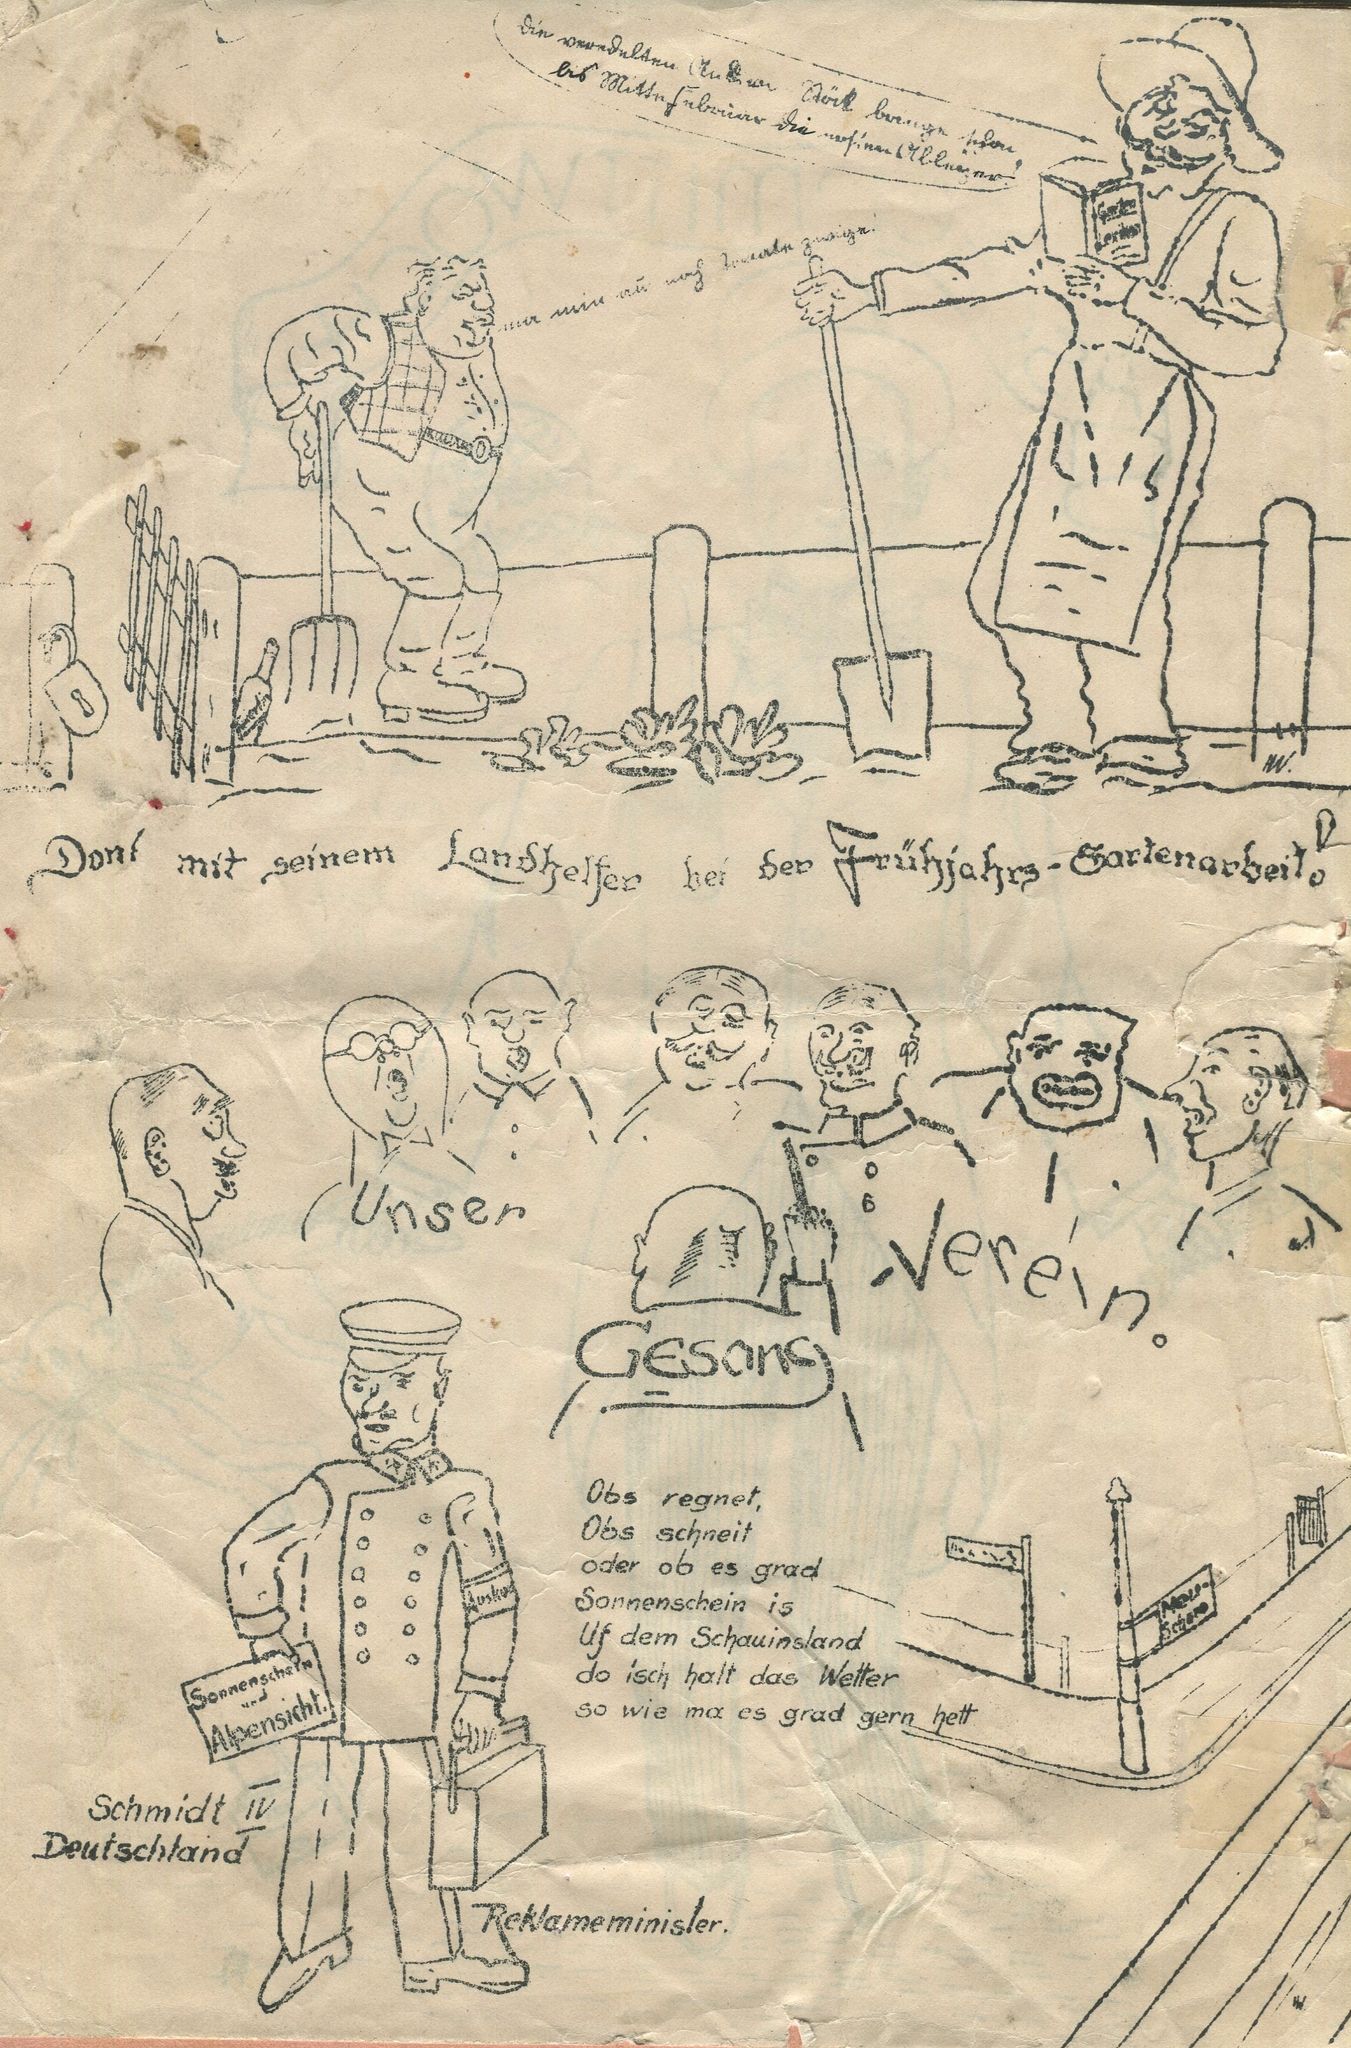 die veredelten Stöck
bis Mitte Februar die
Garten
Lexikon
noch
Doni mit seinem Landhelfer bei der Frühjahrs-Gartenarbeit!
Unser
Gesang
Verein.
Obs regnet,
Obs schneit
oder ob es grad
Sonnenschein is
Uf dem Schauinsland
do isch halt das Wetter
so wie ma es grad gern hett
Sonnenschein
und
Alpensicht.
Schmidt IV
Deutschland
Reklameminister.